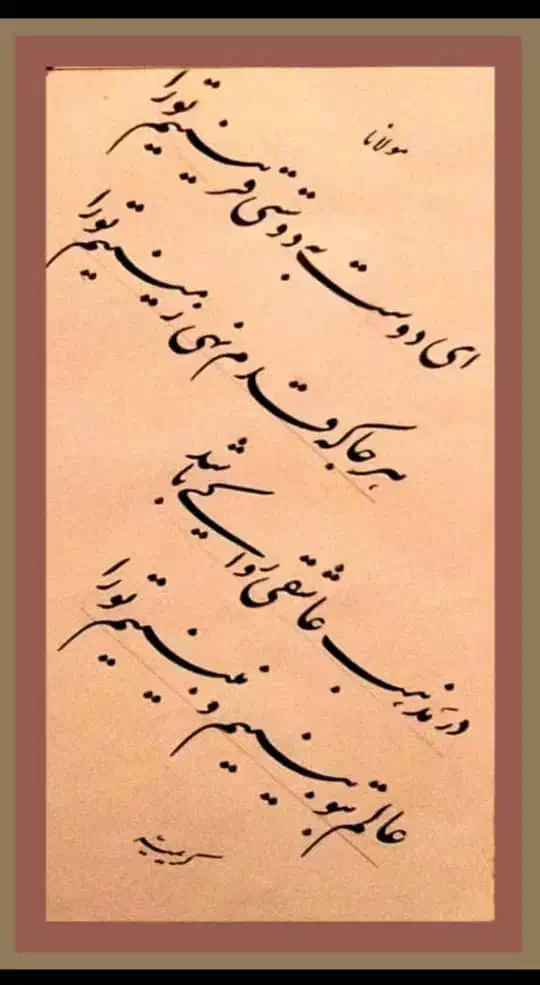 مولانا
ای دوست به دوستی قرینیم تو را
هر جا که قدم نهی زمینیم تو را
در مذهب عاشقی روا کی باشد
عالم بتو بینیم و نبینیم تو را